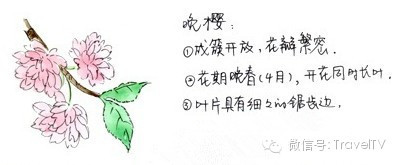 晚樱:
①成簇开放,花瓣繁密.
②花期晚春(4月),开花同时长叶.
③叶片具有细细的锯齿边.
微信号:TravelTV